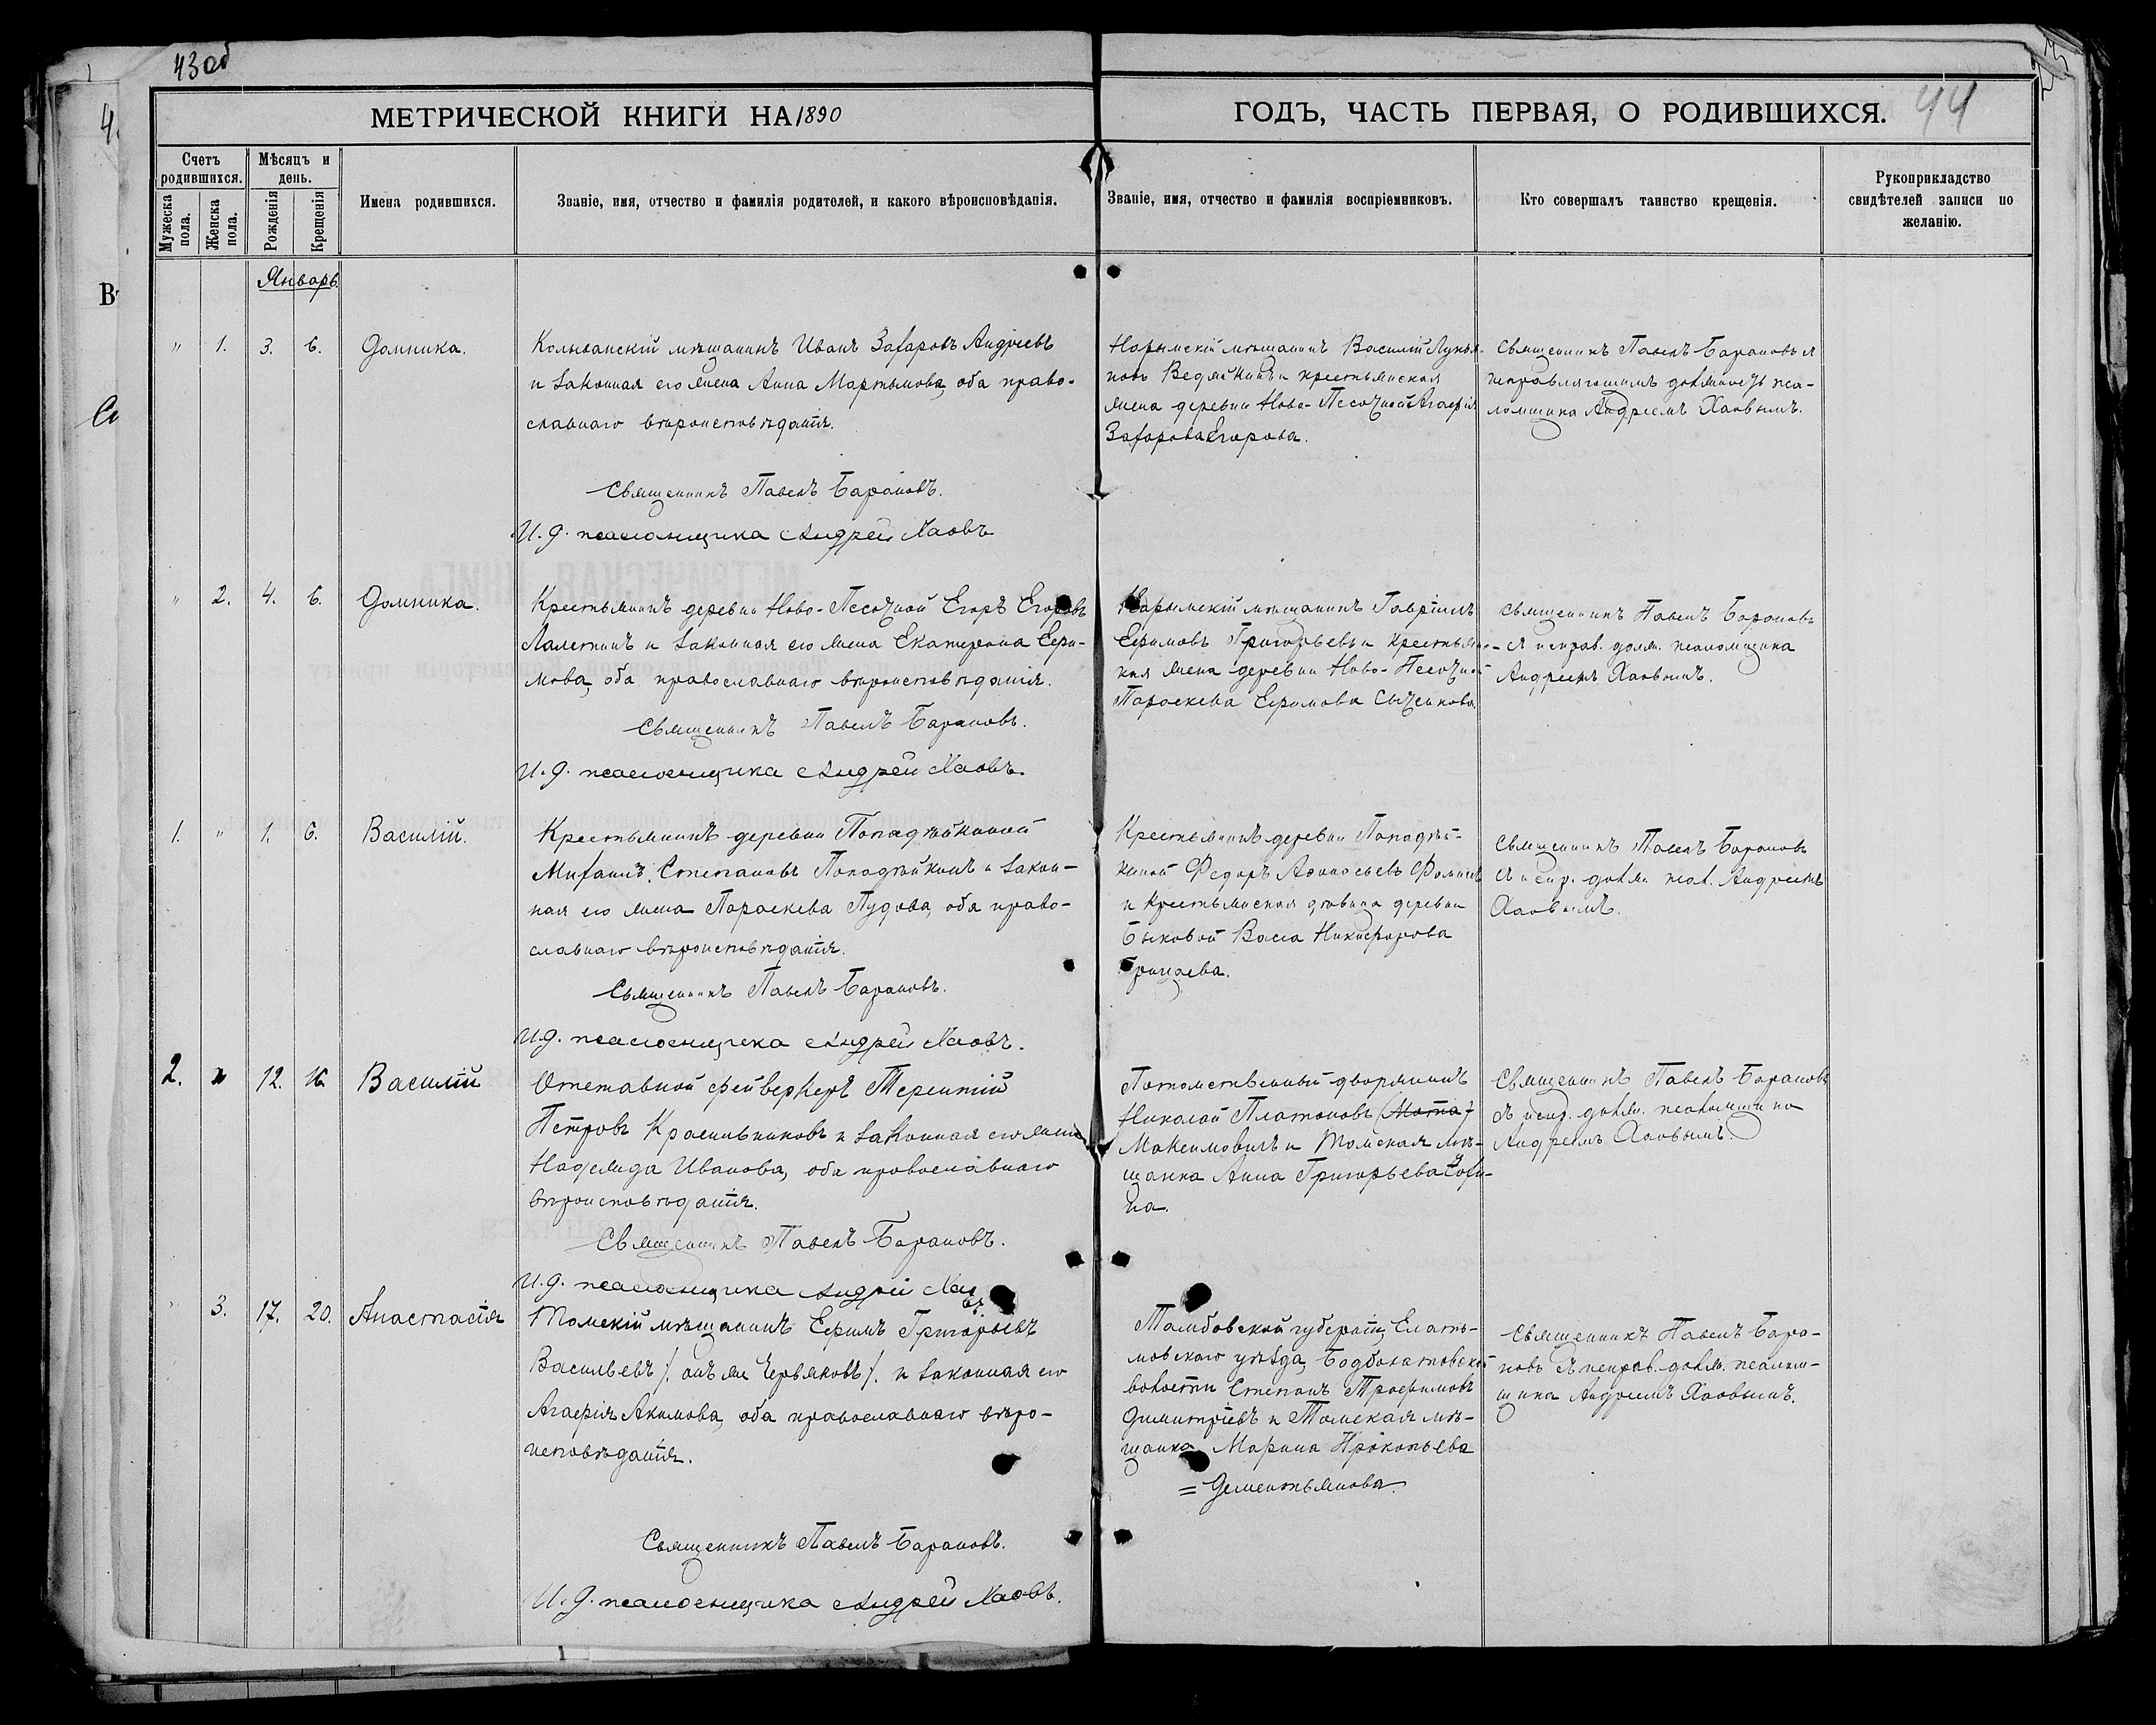 43 об
МЕТРИЧЕСКОЙ КНИГИ НА 1890
ГОДЪ, ЧАСТЬ ПЕРВАЯ, О РОДИВШИХСЯ.
44
Счетъ родившихся.
Мѣсяцъ и день.
Мужеска пола.
Женска пола.
Рожденія
Крещенія
Имена родившихся.
Званіе, имя, отчество и фамилія родителей, и какого вѣроисповѣданія.
Званіе, имя, отчество и фамилія воспріемниковъ.
Кто совершалъ таинство крещенія.
Рукоприкладство
свидѣтелей записи по
желанію.
Январь.
" 1. 3. 6. Домника.
Колыванскій мѣщанинъ Иванъ Захаровъ Андреевъ
и законная его жена Анна Мартынова, оба право-
славнаго вѣроисповѣданія.
Священникъ Павелъ Барановъ.
И.д. псаломщика Андрей Хаовъ
Нарымскій мѣщанинъ Василій Лукья-
новъ и крестьянская
жена деревни Ново-Песочной Агафія
Захарова Егорова.
Священникъ Павелъ Барановъ я
исправляющимъ должность пса-
ломщика Андреемъ Хаовымъ.
" 2. 4. 6. Домника.
Крестьянинъ деревни Ново-Песочной Егоръ Егоровъ
Лалетинъ и законная его жена Екатерина Ефи-
мова, оба православнаго вѣроисповѣданія.
Священникъ Павелъ Барановъ.
И.д. псаломщика Андрей Хаовъ.
Нарымскій мѣщанинъ Гавріилъ
Ефимовъ Григорьевъ и крестьянс-
кая жена деревни Ново-Песочной
Параскева Ефимова Сыченкова
Священникъ Павелъ Барановъ
я исправ. долж. псаломщика
Андреемъ Хаовымъ.
1. " 1. 6. Василій.
Крестьянинъ деревни Попадѣйкиной
Михаилъ Степановъ Попадѣйкинъ и закон-
ная его жена Параскева Пудова, оба право-
славнаго вѣроисповѣданія.
Священникъ Павелъ Барановъ.
И.д. псаломщика Андрей Хаовъ.
Крестьянинъ деревни Попадѣй-
киной Федоръ Афонасьевъ Фоминъ
и крестьянская дѣвица деревни
Быковой Васса Никифорова
Священникъ Павелъ Барановъ
я испр. долж. псал. Андреемъ
Хаовымъ.
2. " 12. 16. Василій
Отставной фейверкеръ Терентій
Петровъ Красильниковъ и законная его жена
Надежда Иванова, оба православнаго
вѣроисповѣданія.
Священникъ Павелъ Барановъ.
И.д. псаломщика Андрей Хаовъ
Потомственный дворянинъ
Николай Платоновъ
Максимовичъ и Томская мѣ-
щанка Анна Григорьева
на.
Священникъ Павелъ Барановъ
я испр. долж. псаломщика
Андреемъ Хаовымъ.
" 3. 17. 20. Анастасія
Томскій мѣщанинъ Ефимъ Григорьевъ
Васильевъ /. онъ же Червяковъ /. и законная его
Агафія Акимова, оба православнаго вѣро-
исповѣданія.
Священникъ Павелъ Барановъ.
И.д. псаломщика Андрей Хаовъ.
Тамбовской губерніи, Елать-
мовскаго уѣзда,
волости Степанъ Трофимовъ
Димитріевъ и Томская мѣ-
щанка Марина Прокопьева
= Дементьянова.
Священникъ Павелъ Бара-
новъ я исправ. долж. псалом-
щика Андреемъ Хаовымъ.